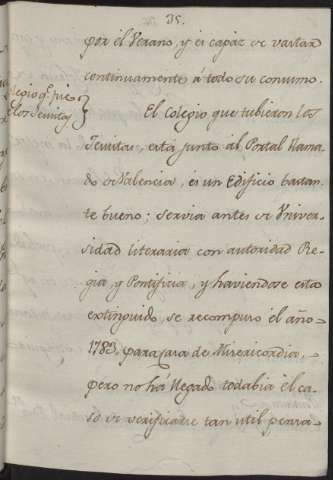 35.
por el Verano, y es capaz de vastar
continuamente á todo su consumo.
egio qe. fue
los Jesuitas
El Colegio que tubieron los
Jesuitas, está junto al Portal llama-
do de Valencia, es un Edificio bastan-
te bueno; servia antes de Univer-
sidad literaria con autoridad Re-
gia, y Pontificia, y haviendose esta
extinguido se recompuso el año
1783. para Casa de Misericordia,
pero no há llegado todabia el ca-
so de verificarse tan util pensa-